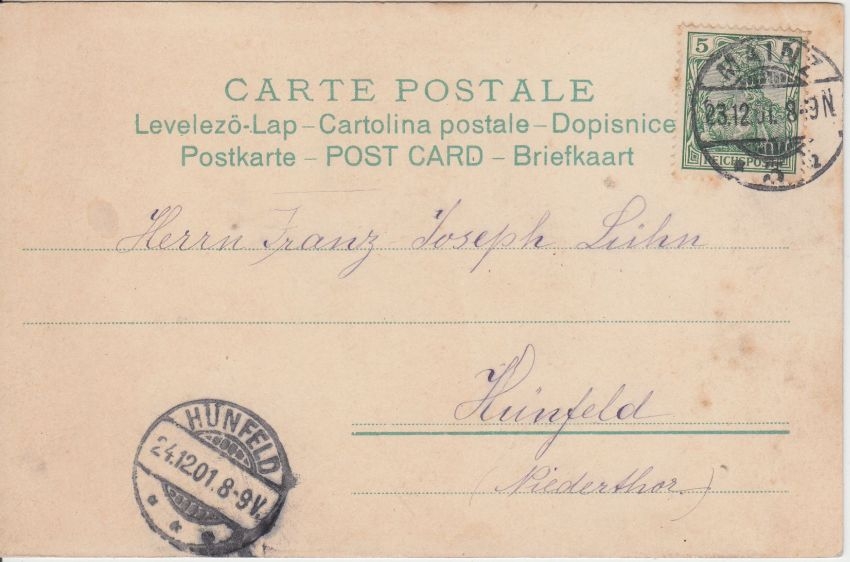 CARTE POSTALE
Levelező-Lap – Cartolina postale – Dopisnice
Postkarte – POST CARD – Briefkaart
5
REICHSPOST
MAINZ
23.12.01. 8-9N
Herrn Franz Joseph Lühn
Hünfeld
(Niederthor)
HÜNFELD
24.12.01. 8-9V.